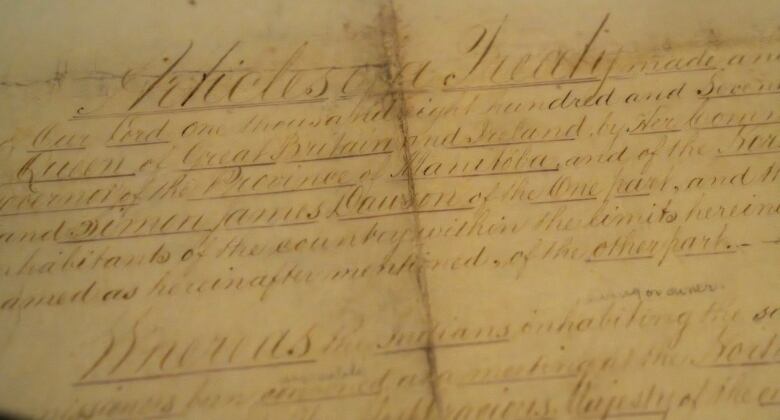 Articles of a Treaty made and
Our Lord one thousand eight hundred and Seven
Queen of Great Britain and Ireland by Her Comm
Governor of the Province of Manitoba, and of the Nor
and Simon James Dawson of the One part, and th
nhabitants of the country within the limits herein
amed as hereinafter mentioned, of the other part.—
Whereas the Indians inhabiting the sa
been convened at a meeting at the
Gracious Majesty of the o